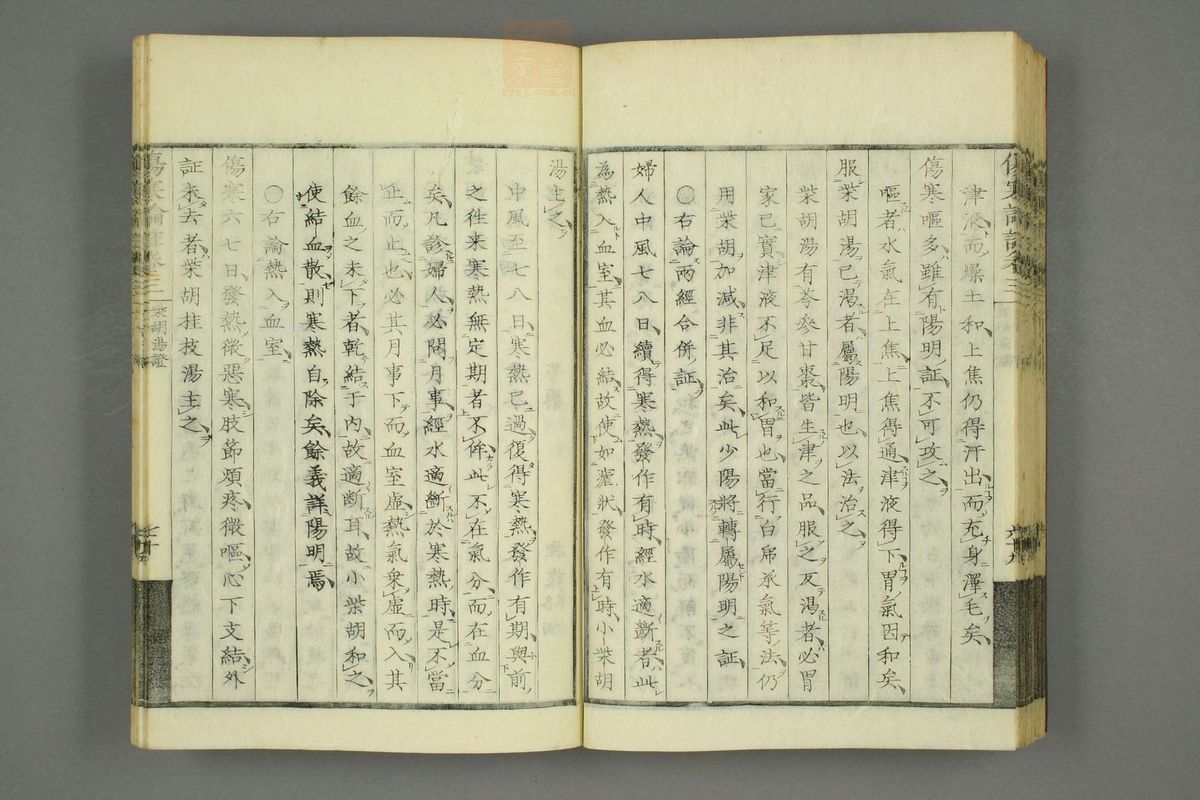 津液而燥土和上焦仍得汗出而充身澤毛矣
傷寒嘔多雖有陽明証不可攻之
嘔者水氣在上焦上焦得通津液得下胃氣因和矣
服柴胡湯已渴者屬陽明也以法治之
柴胡湯有芩參甘棗皆生津之品服之反渴者必胃
家已實津液不足以和胃也當行白虎承氣等法仍
用柴胡加減非其治矣此少陽將轉屬陽明之証
〇右論兩經合併証
婦人中風七八日續得寒熱發作有時經水適斷者此
為熱入血室其血必結故使如瘧狀發作有時小柴胡
湯主之
中風至七八日寒熱已過復得寒熱發作有期與前
之徃來寒熱無定期者不侔此不在氣分而在血分
矣凡診婦人必問月事經水適斷於寒熱時是不當
止而止也必其月事下而血室虛熱氣乘虛而入其
餘血之未下者乾結于内故適斷耳故小柴胡和之
使結血散則寒熱自除矣餘義詳陽明焉
〇右論熱入血室
傷寒六七日發熱微惡寒肢節煩疼微嘔心下支結外
証未去者柴胡桂枝湯主之
柴胡湯證